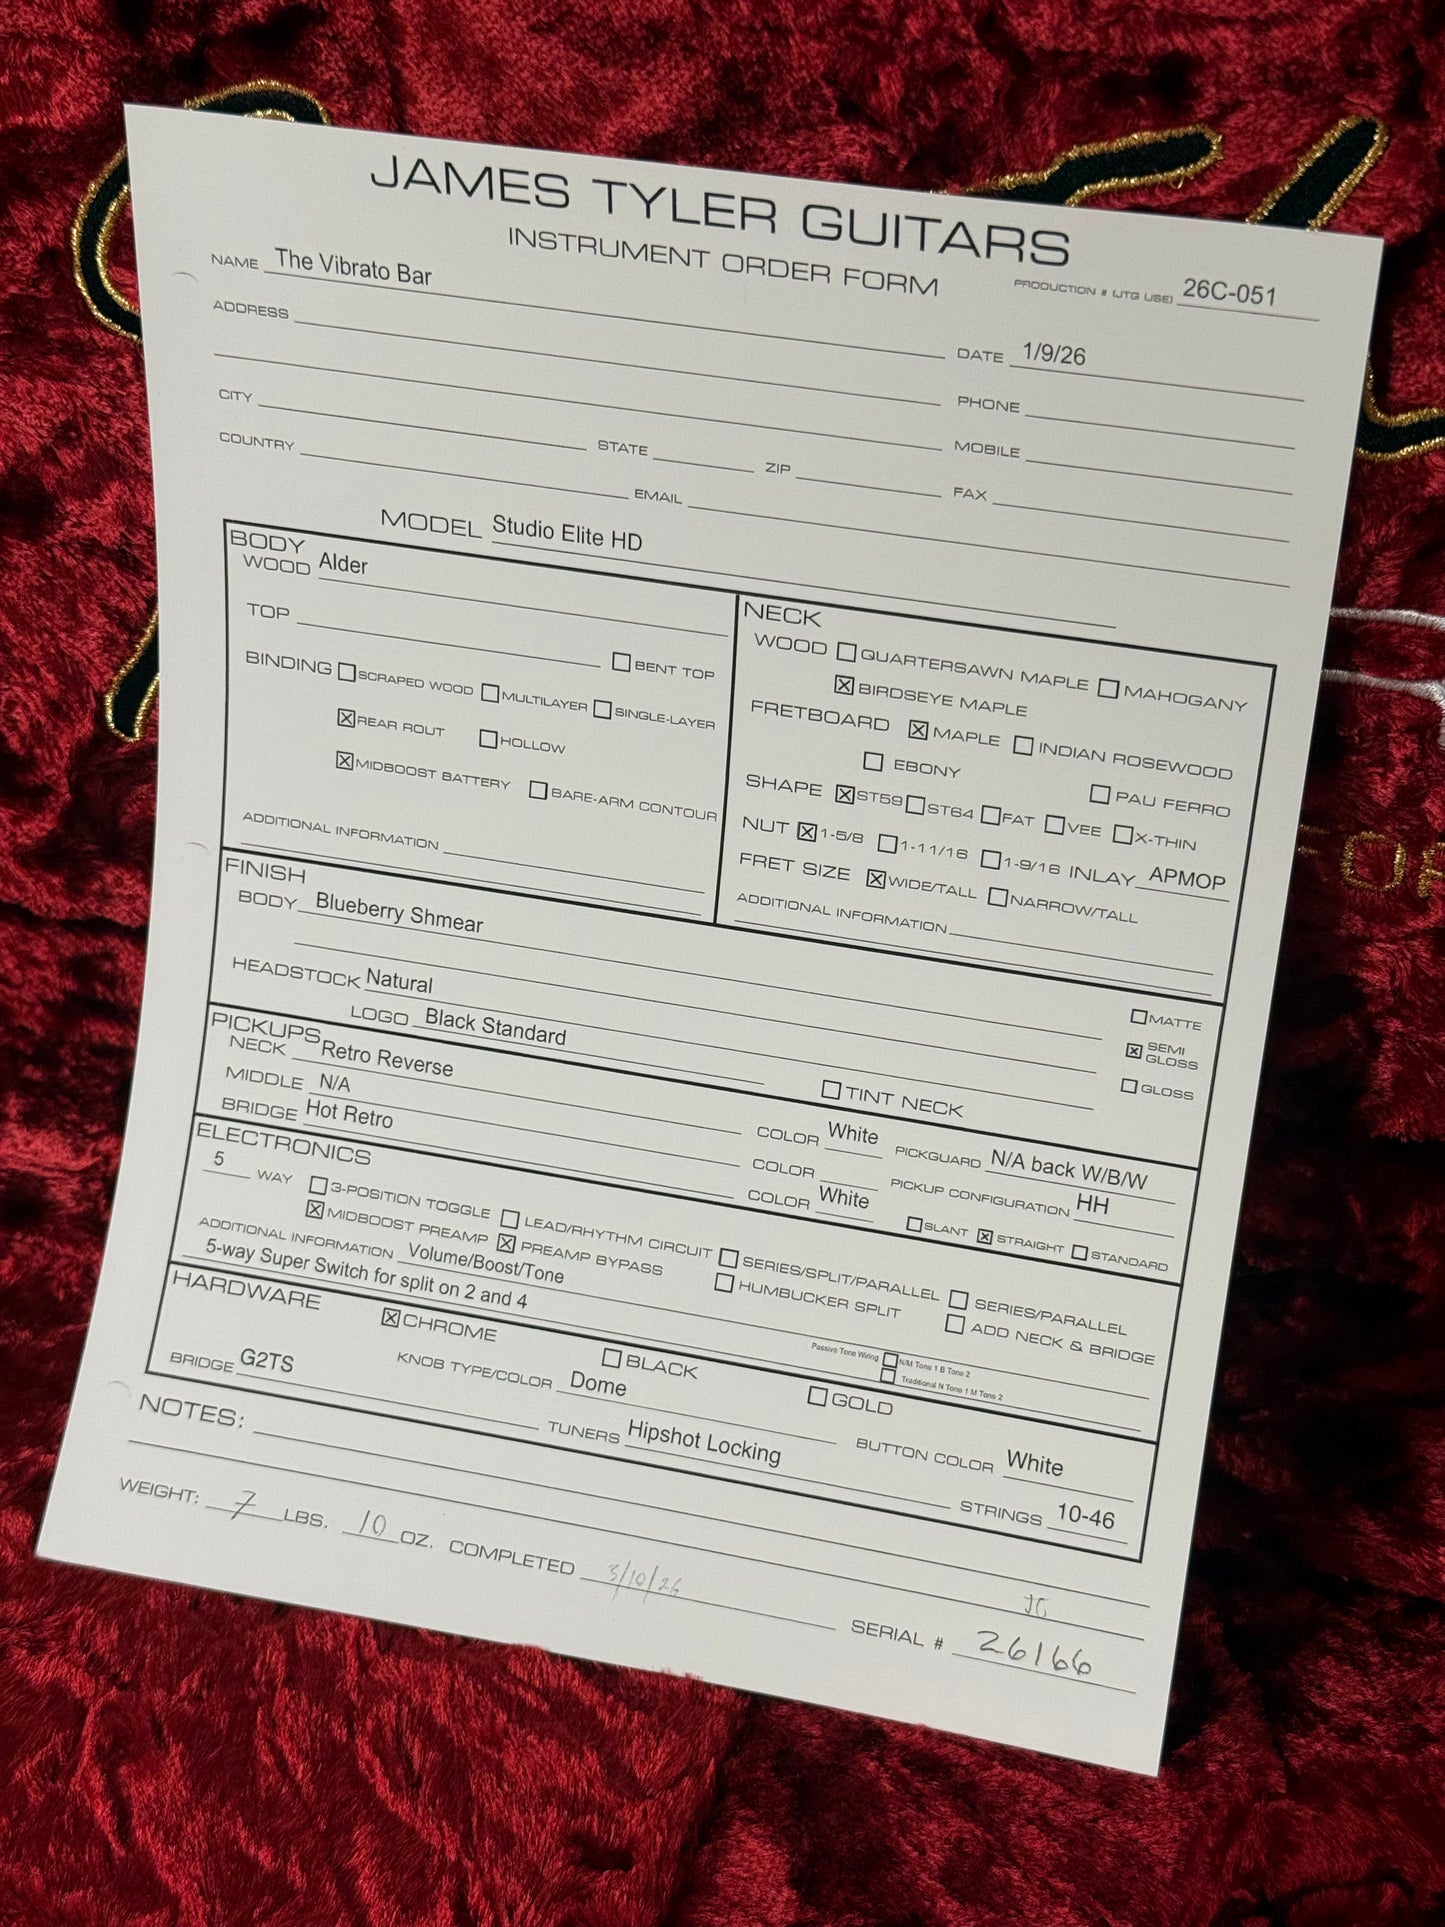 JAMES TYLER GUITARS
INSTRUMENT ORDER FORM
NAME The Vibrato Bar
PRODUCTION # (JTG USE) 26C-051
ADDRESS
DATE 1/9/26
PHONE
CITY STATE ZIP MOBILE
COUNTRY EMAIL FAX
MODEL Studio Elite HD
BODY
WOOD Alder
TOP
☐ BENT TOP
BINDING ☐ SCRAPED WOOD ☐ MULTILAYER ☐ SINGLE-LAYER
☒ REAR ROUT ☐ HOLLOW
☒ MIDBOOST BATTERY ☐ BARE-ARM CONTOUR
ADDITIONAL INFORMATION
NECK
WOOD ☐ QUARTERSAWN MAPLE ☐ MAHOGANY
☒ BIRDSEYE MAPLE
FRETBOARD ☒ MAPLE ☐ INDIAN ROSEWOOD
☐ EBONY ☐ PAU FERRO
SHAPE ☒ ST59 ☐ ST64 ☐ FAT ☐ VEE ☐ X-THIN
NUT ☒ 1-5/8 ☐ 1-11/16 ☐ 1-9/16 INLAY APMOP
FRET SIZE ☒ WIDE/TALL ☐ NARROW/TALL
ADDITIONAL INFORMATION
FINISH
BODY Blueberry Shmear
HEADSTOCK Natural
LOGO Black Standard
☐ TINT NECK
☐ MATTE
☒ SEMI GLOSS
☐ GLOSS
PICKUPS
NECK Retro Reverse COLOR White PICKGUARD N/A back W/B/W
MIDDLE N/A COLOR PICKUP CONFIGURATION HH
BRIDGE Hot Retro COLOR White ☐ SLANT ☒ STRAIGHT ☐ STANDARD
ELECTRONICS
5 WAY ☐ 3-POSITION TOGGLE ☐ LEAD/RHYTHM CIRCUIT ☐ SERIES/SPLIT/PARALLEL ☐ SERIES/PARALLEL
☒ MIDBOOST PREAMP ☒ PREAMP BYPASS ☐ HUMBUCKER SPLIT ☐ ADD NECK & BRIDGE
ADDITIONAL INFORMATION Volume/Boost/Tone
5-way Super Switch for split on 2 and 4
Passive Tone Wiring ☐ N/M Tone 1 B Tone 2
☐ Traditional N Tone 1 M Tone 2
HARDWARE
☒ CHROME ☐ BLACK ☐ GOLD
KNOB TYPE/COLOR Dome BUTTON COLOR White
BRIDGE G2TS TUNERS Hipshot Locking STRINGS 10-46
NOTES:
WEIGHT: 7 LBS. 10 OZ. COMPLETED 3/10/26
JG
SERIAL # 26166